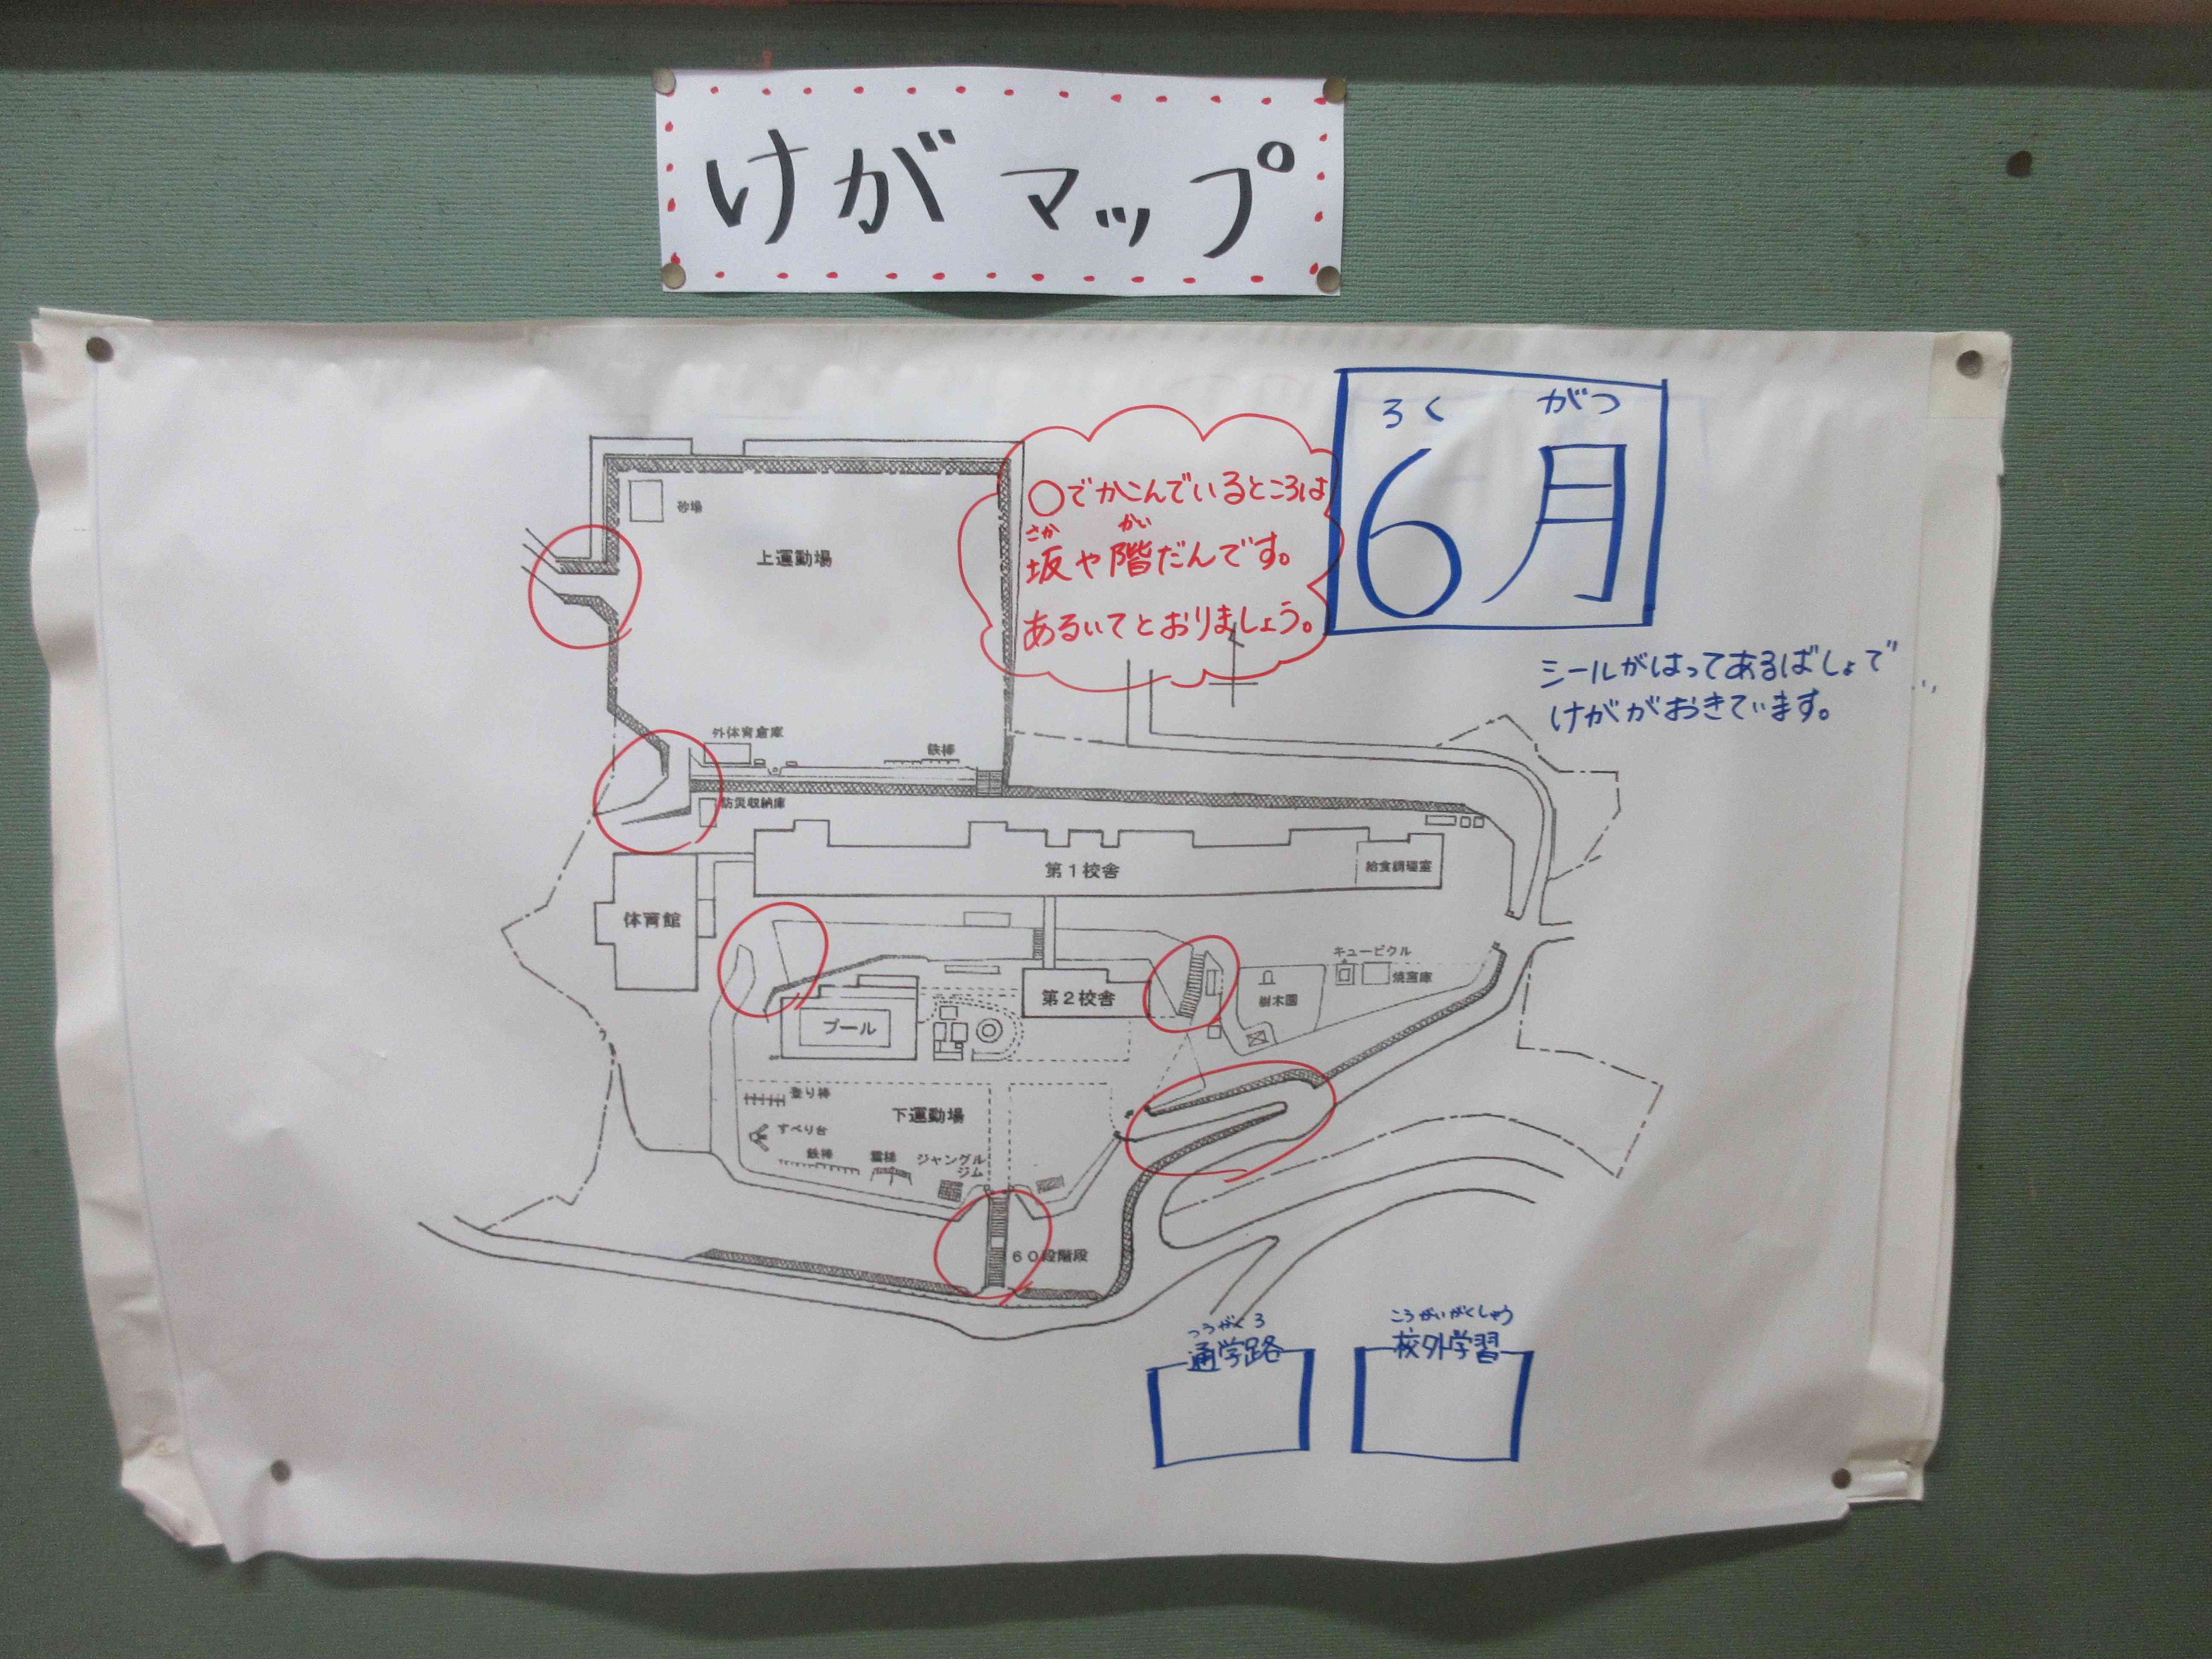 けがマップ
ろく がつ
6月
○でかこんでいるところは
さか かい
坂や階だんです。
あるいてとおりましょう。
シールがはってあるばしょで
けががおきています。
砂場
上運動場
外体育倉庫
鉄棒
防災収納庫
第1校舎
給食調理室
体育館
キュービクル
焼窯庫
樹木園
第2校舎
プール
登り棒
下運動場
すべり台
鉄棒
雲梯
ジャングル
ジム
60段階段
つうがくろ
通学路
こうがいがくしゅう
校外学習